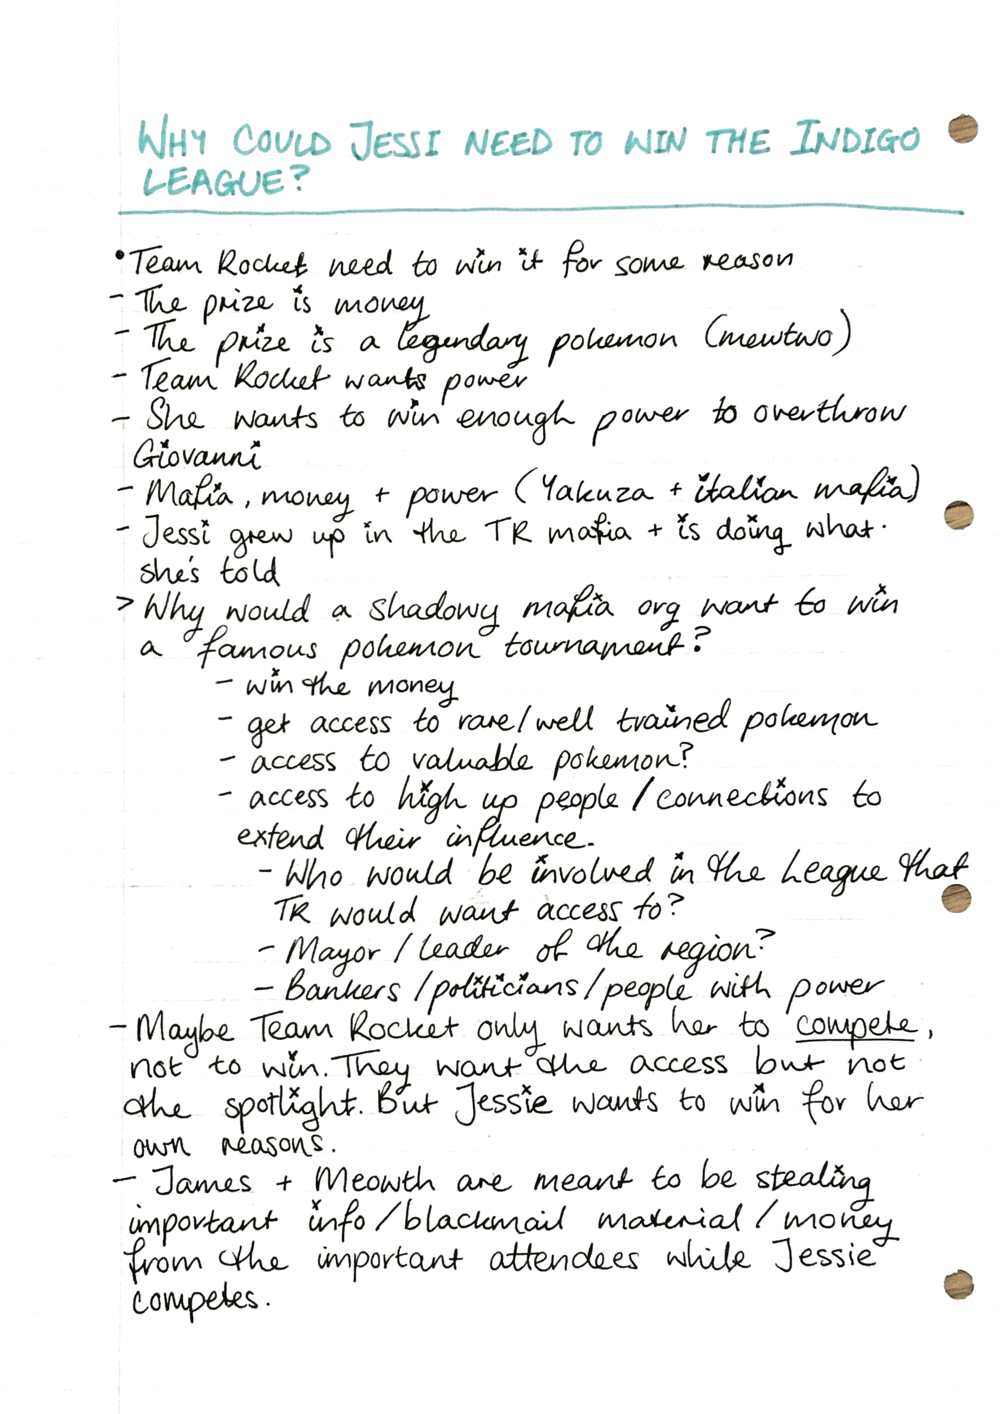 WHY COULD JESSI NEED TO WIN THE INDIGO
LEAGUE?
• Team Rocket need to win it for some reason
- The prize is money
- The prize is a legendary pokemon (mewtwo)
- Team Rocket wants power
- She wants to win enough power to overthrow
Giovanni
- Mafia, money + power (Yakuza + italian mafia)
- Jessi grew up in the TR mafia + is doing what
she's told
> Why would a shadowy mafia org want to win
a famous pokemon tournament?
- win the money
- get access to rare/well trained pokemon
- access to valuable pokemon?
- access to high up people / connections to
extend their influence.
- Who would be involved in the League that
TR would want access to?
- Mayor / leader of the region?
- Bankers /politicians/people with power
- Maybe Team Rocket only wants her to compete,
not to win. They want the access but not
the spotlight. But Jessie wants to win for her
own reasons.
- James + Meowth are meant to be stealing
important info/blackmail material/money
from the important attendees while Jessie
competes.